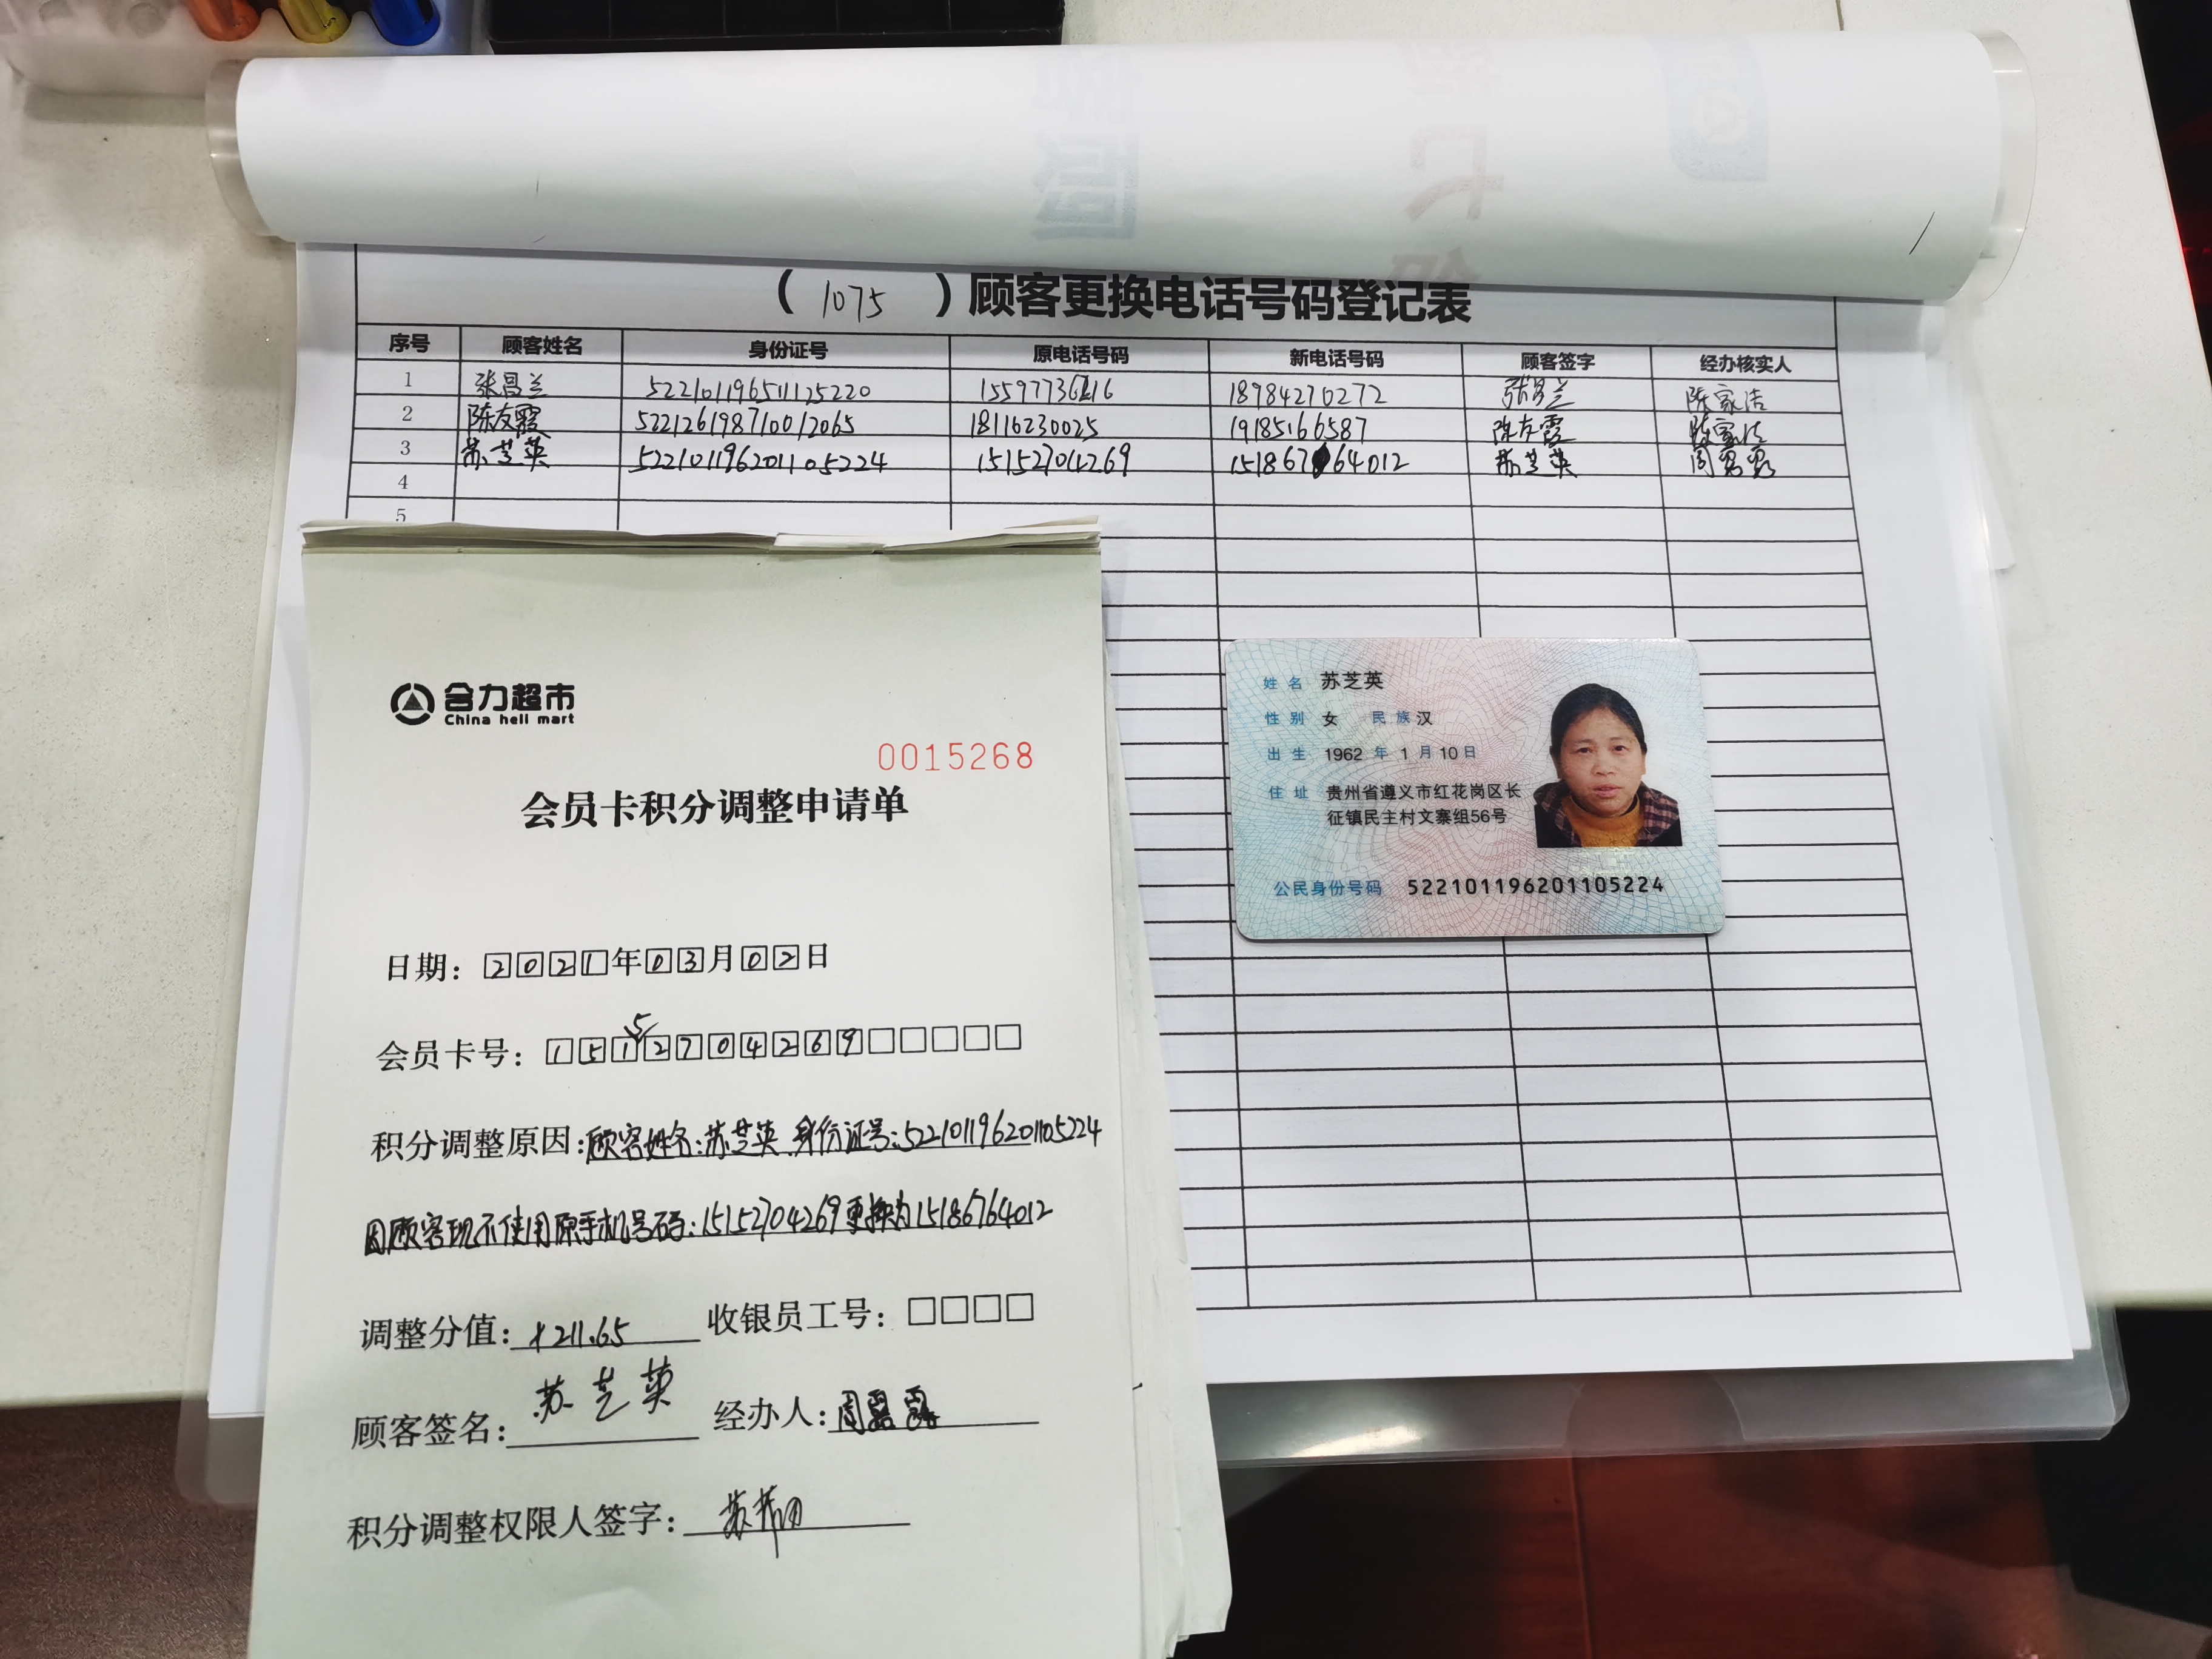 （ 1075 ）顾客更换电话号码登记表
序号 顾客姓名 身份证号 原电话号码 新电话号码 顾客签字 经办核实人
1 张昌兰 522101196511125220 18984270272 张昌兰 陈家洁
2 陈友霞 522126198710012065 18116230025 19185166587 陈友霞 陈家洁
3 苏芝英 522101196201105224 15152704269 15186764012 苏芝英
4
5
合力超市
China heli mart
0015268
会员卡积分调整申请单
日期：2021年03月02日
会员卡号：15152704269
积分调整原因：顾客姓名：苏芝英 身份证号：522101196201105224
因顾客现不使用原手机号码：15152704269更换为15186764012
调整分值：+211.65 收银员工号：
顾客签名：苏芝英 经办人：
积分调整权限人签字：
姓名 苏芝英
性别 女 民族 汉
出生 1962 年 1 月 10 日
住址 贵州省遵义市红花岗区长
征镇民主村文寨组56号
公民身份号码 522101196201105224